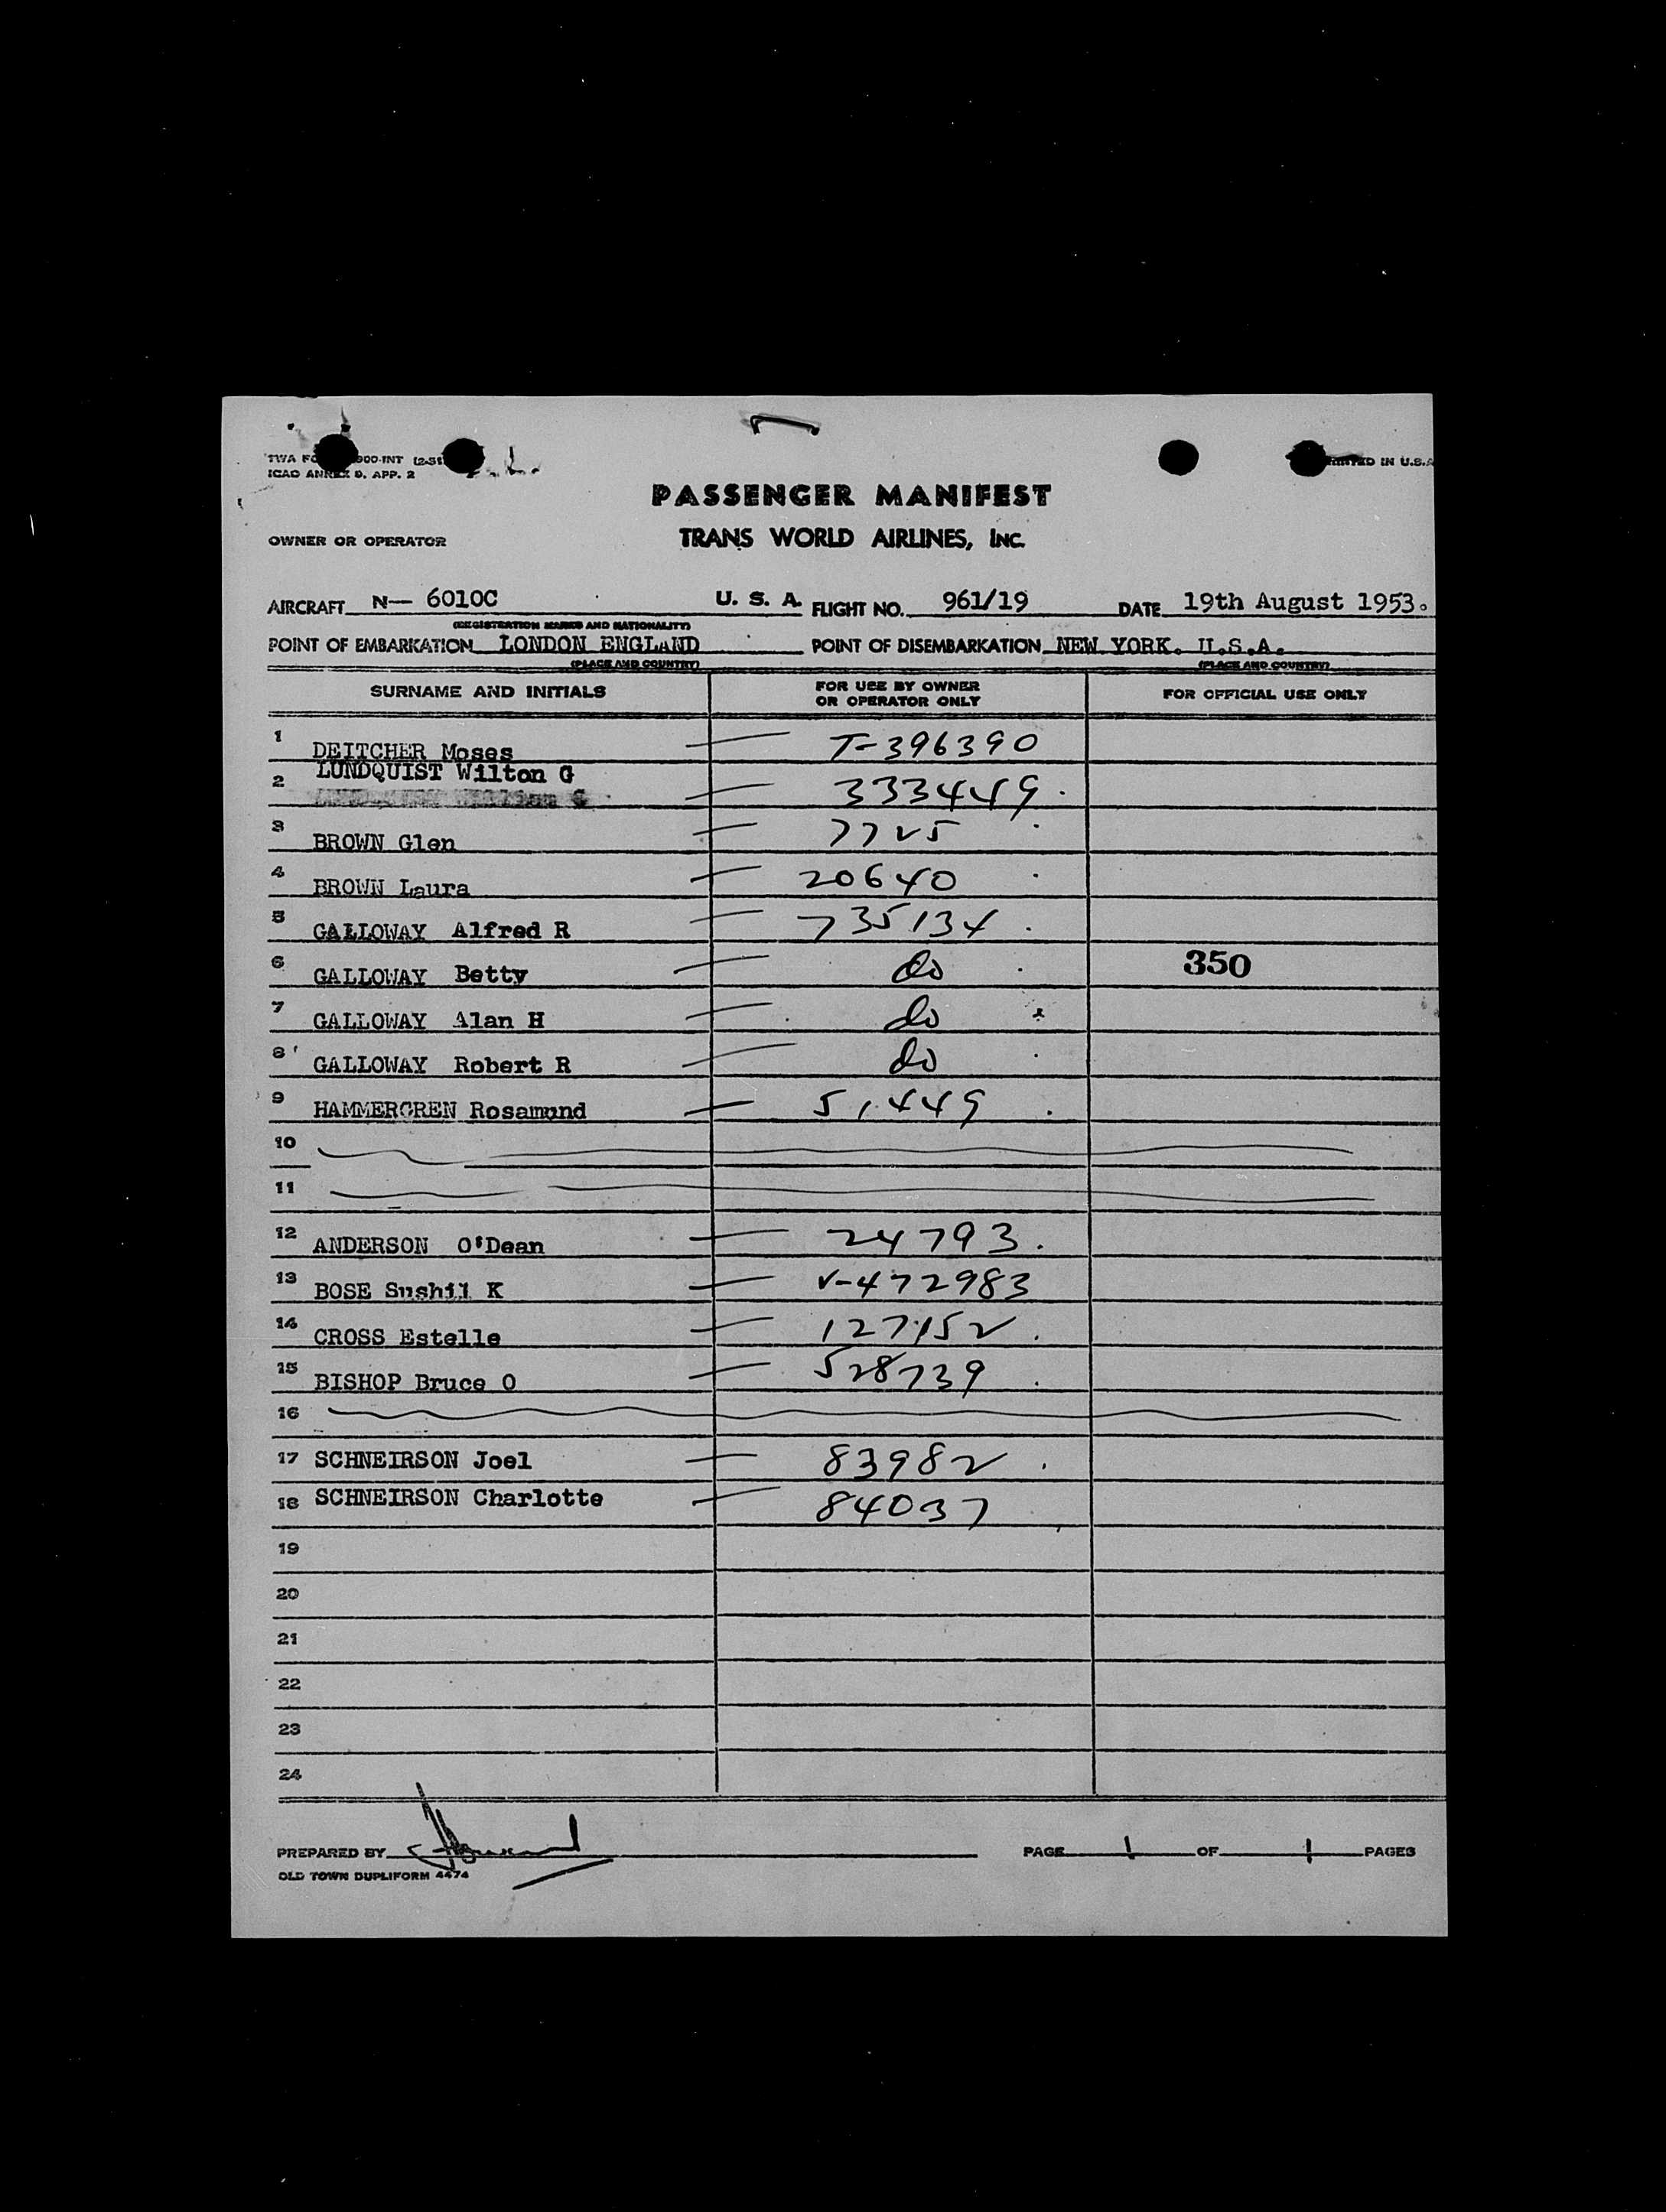 ICAO ANNEX 9, APP. 2
PRINTED IN U.S.A
PASSENGER MANIFEST
OWNER OR OPERATOR TRANS WORLD AIRLINES, INC.
AIRCRAFT N— 6010C U. S. A. FLIGHT NO. 961/19 DATE 19th August 1953.
(REGISTRATION MARKS AND NATIONALITY)
POINT OF EMBARKATION LONDON ENGLAND POINT OF DISEMBARKATION NEW YORK. U.S.A.
(PLACE AND COUNTRY) (PLACE AND COUNTRY)
SURNAME AND INITIALS FOR USE BY OWNER OR OPERATOR ONLY FOR OFFICIAL USE ONLY
1 DEITCHER Moses — T-396390
2 LUNDQUIST Wilton G — 333449.
3 BROWN Glen — 7725
4 BROWN Laura — 20640
5 GALLOWAY Alfred R — 735134.
6 GALLOWAY Betty — do 350
7 GALLOWAY Alan H — do
8 GALLOWAY Robert R — do
9 HAMMERGREN Rosamund — 51449.
10
11
12 ANDERSON O'Dean — 24793.
13 BOSE Sushil K — V-472983
14 CROSS Estelle — 127152.
15 BISHOP Bruce O — 528739.
16
17 SCHNEIRSON Joel — 83982.
18 SCHNEIRSON Charlotte — 84037
19
20
21
22
23
24
PREPARED BY PAGE 1 OF 1 PAGES
OLD TOWN DUPLIFORM 4474